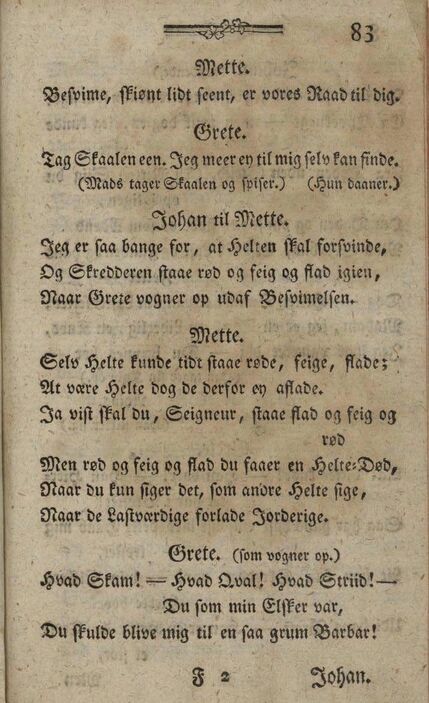 83
Mette.
Besvime, skiønt lidt seent, er vores Raad til dig.
Grete.
Tag Skaalen een. Jeg meer ey til mig selv kan finde.
(Mads tager Skaalen og spiser.) (Hun daaner.)
Johan til Mette.
Jeg er saa bange for, at Helten skal forsvinde,
Og Skredderen staae rød og feig og flad igien,
Naar Grete vogner op udaf Besvimelsen.
Mette.
Selv Helte kunde tidt staae røde, feige, flade;
At være Helte dog de derfor ey aflade.
Ja vist skal du, Seigneur, staae flad og feig og
rød
Men rød og feig og flad du faaer en Helte-Død,
Naar du kun siger det, som andre Helte sige,
Naar de Lastværdige forlade Jorderige.
Grete. (som vogner op.)
Hvad Skam! — Hvad Qval! Hvad Striid! —
Du som min Elsker var,
Du skulde blive mig til en saa grum Barbar!
F 2 Johan.